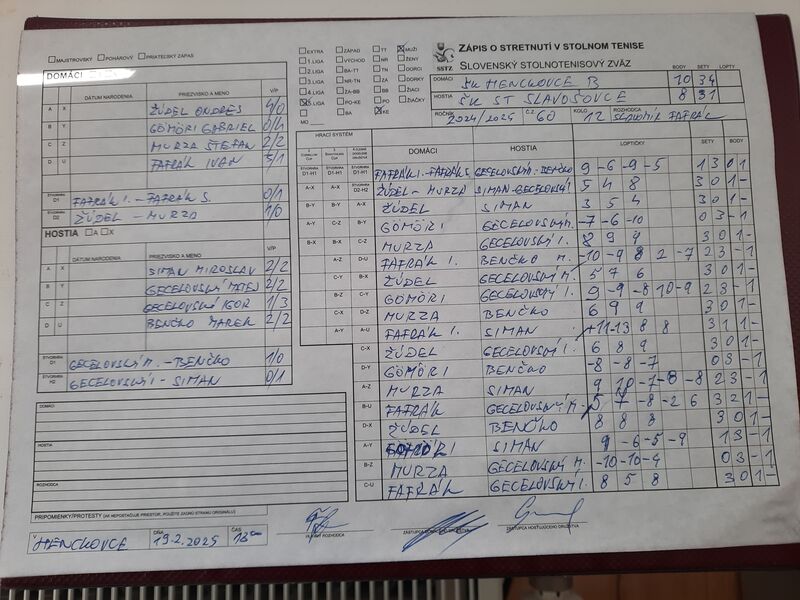 ZÁPIS O STRETNUTÍ V STOLNOM TENISE
SLOVENSKÝ STOLNOTENISOVÝ ZVÄZ
SSTZ
MAJSTROVSKÝ POHÁROVÝ PRIATEĽSKÝ ZÁPAS
EXTRA ZÁPAD TT MUŽI
1.LIGA VÝCHOD NR ŽENY
2.LIGA BA-TT TN DORCI
3.LIGA NR-TN ZA DORKY
4.LIGA ZA-BB BB ŽIACI
5.LIGA PO-KE PO ŽIAČKY
BA KE
MO
DOMÁCI ŠK HENCKOVCE B
BODY SETY LOPTY
10 34
HOSTIA ŠK ST SLAVOŠOVCE 8 31
ROČNÍK 2024/2025 Č.Z. 60 KOLO 12 ROZHODCA SLAVOMÍR FAFRÁK
DOMÁCI
DÁTUM NARODENIA PRIEZVISKO A MENO V/P
A X ŽÚDEL ONDREJ 4/0
B Y GÖMÖRI GABRIEL 0/4
C Z MURZA ŠTEFAN 2/2
D U FAFRÁK IVAN 3/1
ŠTVORHRA D1 FAFRÁK I. - FAFRÁK S. 0/1
ŠTVORHRA D2 ŽÚDEL - MURZA 1/0
HOSTIA A X
DÁTUM NARODENIA PRIEZVISKO A MENO V/P
A X SIMAN MIROSLAV 2/2
B Y GECELOVSKÝ MATEJ 2/2
C Z GECELOVSKÝ IGOR 1/3
D U BENČKO MAREK 2/2
ŠTVORHRA GECELOVSKÝ M. - BENČKO 1/0
ŠTVORHRA H2 GECELOVSKÝ I - SIMAN 0/1
HRACÍ SYSTÉM DOMÁCI HOSTIA LOPTIČKY SETY BODY
D1-H1 D1-H1 D1-H1 FAFRÁK I. - FAFRÁK S. GECELOVSKÝ - BENČKO 9 -6 -9 -5 1 3 0 1
A-X A-X D2-H2 ŽÚDEL - MURZA SIMAN - GECELOVSKÝ 5 4 8 3 0 1 -
B-Y B-Y A-X ŽÚDEL SIMAN 3 5 4 3 0 1 -
A-Y C-Z B-Y GÖMÖRI GECELOVSKÝ M. -7 -6 -10 0 3 - 1
B-X B-X C-Z MURZA GECELOVSKÝ I. 8 9 9 3 0 1 -
A-Z D-U FAFRÁK I. BENČKO M. -10 -9 8 2 -7 2 3 - 1
C-Y B-X ŽÚDEL GECELOVSKÝ M. 5 7 6 3 0 1 -
B-Z C-Y GÖMÖRI GECELOVSKÝ I. 9 -9 -8 10 -9 2 3 - 1
C-X D-Z MURZA BENČKO 6 9 9 3 0 1 -
A-Y A-U FAFRÁK I. SIMAN +11 -13 8 8 3 1 1 -
C-X ŽÚDEL GECELOVSKÝ I. 6 8 9 3 0 1 -
D-Y GÖMÖRI BENČKO -8 -8 -7 0 3 - 1
A-Z MURZA SIMAN 9 10 -7 -8 -8 2 3 - 1
B-U FAFRÁK GECELOVSKÝ M. 5 7 -8 -2 6 3 2 1 -
D-X ŽÚDEL BENČKO 8 8 8 3 0 1 -
A-Y GÖMÖRI SIMAN 9 -6 -5 -9 1 3 - 1
B-Z MURZA GECELOVSKÝ M. -10 -10 -9 0 3 - 1
C-U FAFRÁK GECELOVSKÝ I. 8 5 8 3 0 1 -
DOMÁCI
HOSTIA
ROZHODCA
PRIPOMIENKY/PROTESTY (AK NEPOSTAČUJE PRIESTOR, POUŽITE ZADNÚ STRANU ORIGINÁLU)
V HENCKOVCE DŇA 19.2.2025 ČAS 18:00
VEDÚCI ROZHODCA
ZÁSTUPCA HOSŤUJÚCEHO DRUŽSTVA